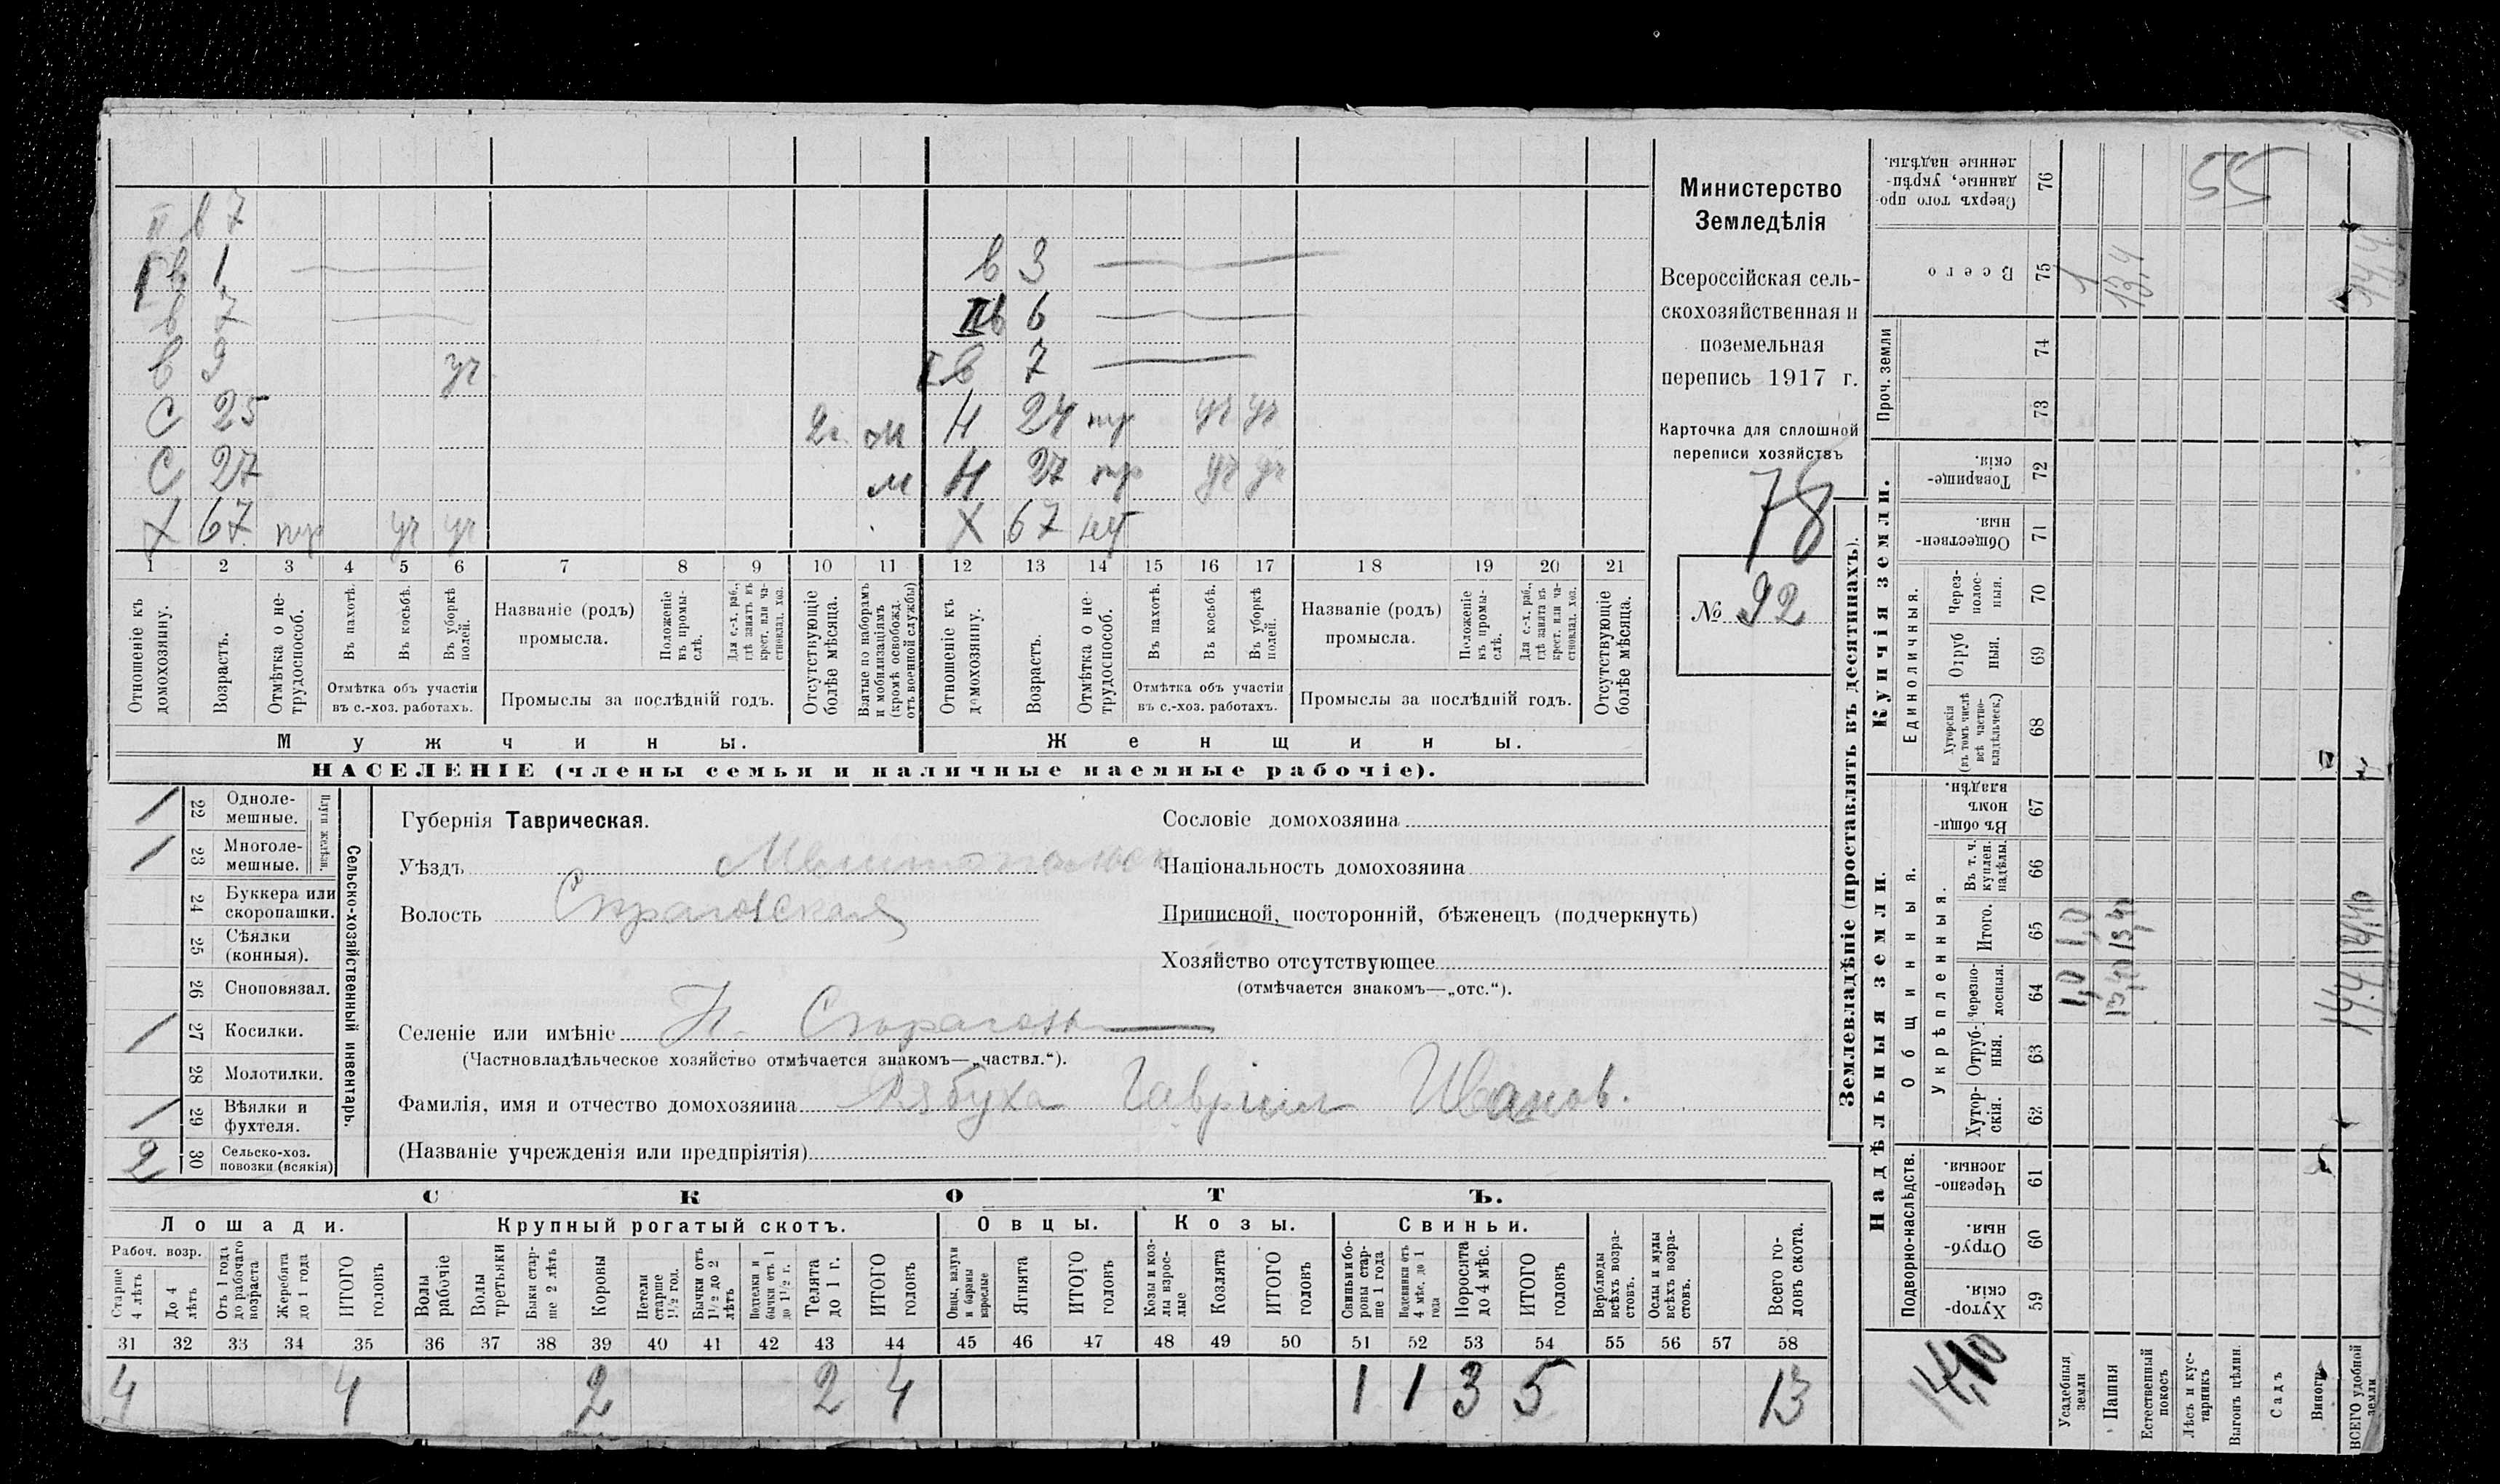 II в 7
I в 1
в 3
в 7
II в 6
в 9 уч
I в 7
С 25 2г. м
Н 24 пр уч уч
С 27 м
Н 27 пр уч уч
Х 67 пр уч уч
Х 67 нт
1 2 3 4 5 6 7 8 9 10 11 12 13 14 15 16 17 18 19 20 21
Отношеніе къ домохозяину.
Возрастъ.
Отмѣтка о нетрудоспособ.
Въ пахотѣ.
Въ косьбѣ.
Въ уборкѣ полей.
Отмѣтка объ участіи
въ с.-хоз. работахъ.
Названіе (родъ)
промысла.
Положеніе въ промыслѣ.
Для с.-х. раб., гдѣ занятъ въ крест. или частновлад. хоз.
Промыслы за послѣдній годъ.
Отсутствующіе болѣе мѣсяца.
Взятые по наборамъ и мобилизаціямъ (кромѣ освобожд. отъ военной службы)
Отношеніе къ домохозяину.
Возрастъ.
Отмѣтка о нетрудоспособ.
Въ пахотѣ.
Въ косьбѣ.
Въ уборкѣ полей.
Отмѣтка объ участіи
въ с.-хоз. работахъ.
Названіе (родъ)
промысла.
Положеніе въ промыслѣ.
Для с.-х. раб., гдѣ занята въ крест. или частновлад. хоз.
Промыслы за послѣдній годъ.
Отсутствующіе болѣе мѣсяца.
Мужчины.
Женщины.
НАСЕЛЕНІЕ (члены семьи и наличные наемные рабочіе).
Министерство
Земледѣлія
Всероссійская сель-
скохозяйственная и
поземельная
перепись 1917 г.
Карточка для сплошной
переписи хозяйствъ
78
№ 92
1 22 Одноле-
мешные.
1 23 Многоле-
мешные.
Плуги желѣзн.
24 Буккера или
скоропашки.
25 Сѣялки
(конныя).
26 Сноповязал.
1 27 Косилки.
28 Молотилки.
1 29 Вѣялки и
фухтеля.
2 30 Сельско-хоз.
повозки (всякія)
Сельско-хозяйственный инвентарь.
Губернія Таврическая.
Уѣздъ Мелитопольск
Волость
Селеніе или имѣніе Н.
(Частновладѣльческое хозяйство отмѣчается знакомъ—„частвл.“).
Фамилія, имя и отчество домохозяина Рябуха Гавріил Иванов.
(Названіе учрежденія или предпріятія)
Сословіе домохозяина
Національность домохозяина
Приписной, посторонній, бѣженецъ (подчеркнуть)
Хозяйство отсутствующее
(отмѣчается знакомъ—„отс.“).
СКОТЪ.
Лошади.
Рабоч. возр.
Старше 4 лѣтъ
До 4 лѣтъ
Отъ 1 года до рабочаго возраста
Жеребята до 1 года
ИТОГО головъ
Крупный рогатый скотъ.
Волы рабочіе
Волы третьяки
Быки старше 2 лѣтъ
Коровы
Нетели старше 1½ год.
Бычки отъ 1½ до 2 лѣтъ
Подтелки и бычки отъ 1 до 1½ г.
Телята до 1 г.
ИТОГО головъ
Овцы.
Овцы, валухи и бараны взрослые
Ягнята
ИТОГО головъ
Козы.
Козы и козлы взрослые
Козлята
ИТОГО головъ
Свиньи.
Свиньи и боровы старше 1 года
Подсвинки отъ 4 мѣс. до 1 года
Поросята до 4 мѣс.
ИТОГО головъ
Верблюды всѣхъ возрастовъ.
Ослы и мулы всѣхъ возрастовъ.
Всего головъ скота.
31 32 33 34 35 36 37 38 39 40 41 42 43 44 45 46 47 48 49 50 51 52 53 54 55 56 57 58
4 4 2 2 4 1 1 3 5 13
Землевладѣніе (проставлять въ десятинахъ).
Купчія земли.
Надѣльныя земли.
Сверхъ того проданные, укрѣпленные надѣлы. 76
55
Всего 75 1 13,4 14,4
Проч. земли
74
73
Товарищескія. 72
Общественныя. 71
Единоличныя.
Черезполосныя. 70
Отрубныя. 69
Хуторскія (въ томъ числѣ всѣ частновладѣльческ.) 68
Общинныя.
Въ общинномъ владѣн. 67
Укрѣпленныя.
Въ т. ч. куплен. надѣлы. 66
Итого. 65 1,0 13,40 14,40
Черезполосныя. 64 1,0 13,40 14,4
Отрубныя. 63
Хуторскія. 62
Подворно-наслѣдств.
Черезполосныя. 61
Отрубныя. 60
Хуторскія. 59
14,40
Усадебныя земли
Пашня
Естественный покосъ
Лѣсъ и кустарникъ
Выгонъ цѣлин.
Садъ
Виногр.
ВСЕГО удобной земли